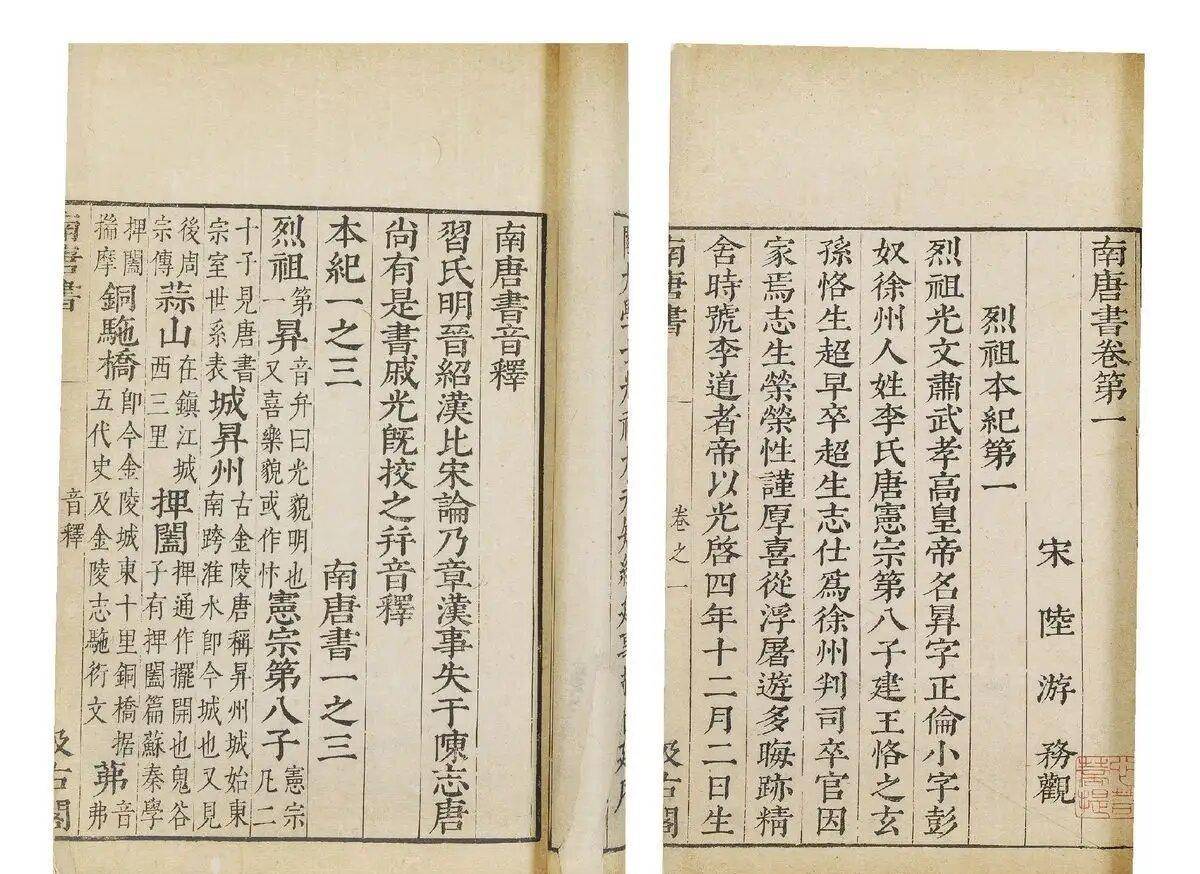 南唐書卷第一
宋陸游務觀
烈祖本紀第一
烈祖光文肅武孝高皇帝名昪字正倫小字彭
奴徐州人姓李氏唐憲宗第八子建王恪之玄
孫恪生超早卒超生志仕爲徐州判司卒官因
家焉志生榮榮性謹厚喜從浮屠遊多晦跡精
舍時號李道者帝以光啓四年十二月二日生
南唐書 卷之一 汲古閣
南唐書音釋
習氏明晉紹漢比宋論乃章漢事失于陳志唐
尚有是書戚光旣挍之并音釋
本紀一之三 南唐書一之三
烈祖第一昪音弁曰光貌明也又喜樂貌或作忭憲宗第八子憲宗凡二
十子見唐書宗室世系表城昇州古金陵唐稱昇州城始東南跨淮水卽今城也又見
後周宗傳蒜山在鎮江城西三里捭闔捭通作擺開也鬼谷子有捭闔篇蘇秦學
捭闔揣摩銅駞橋卽今金陵城東十里銅橋据五代史及金陵志駞衍文茀音弗
南唐書 音釋 汲古閣